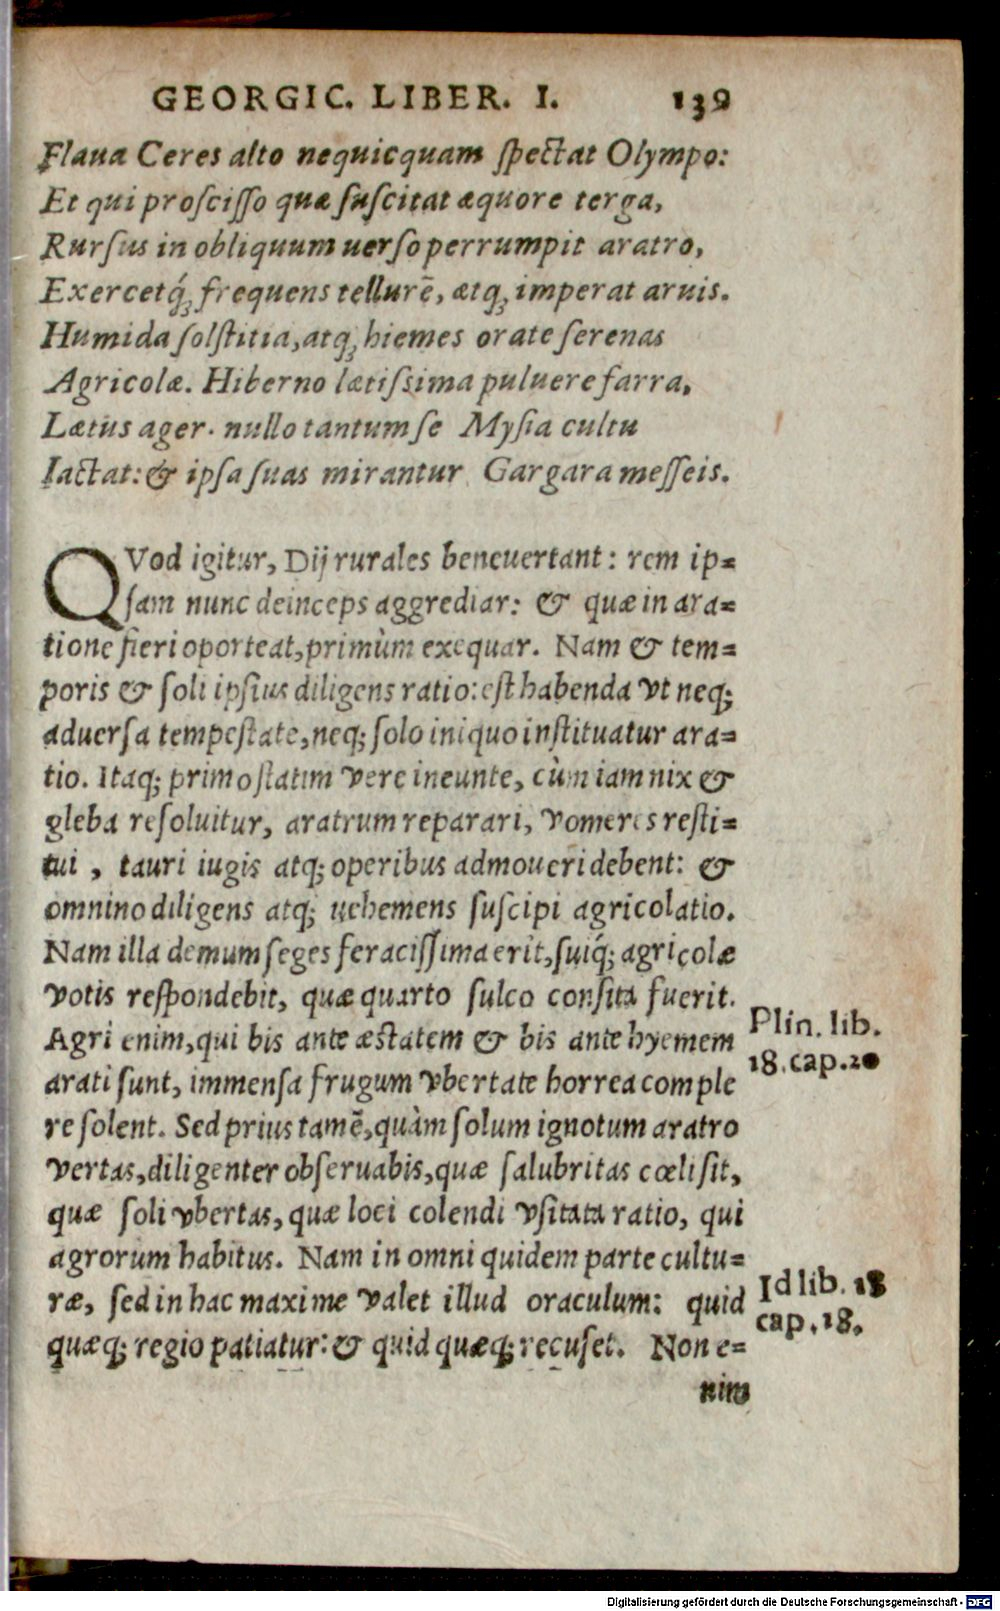 GEORGIC. LIBER. I. 139
Flaua Ceres alto nequicquam spectat Olympo:
Et qui proscisso quæ suscitat æquore terga,
Rursus in obliquum uerso perrumpit aratro,
Exercetq́ꝫ frequens tellurē, atqꝫ imperat aruis.
Humida solstitia, atqꝫ hiemes orate serenas
Agricolæ. Hiberno lætissima puluere farra,
Lætus ager. nullo tantum se Mysia cultu
Iactat: & ipsa suas mirantur Gargara messeis.
QVod igitur, Dij rurales beneuertant: rem ip=
sam nunc deinceps aggrediar: & quæ in ara=
tione fieri oporteat, primùm exequar. Nam & tem=
poris & soli ipsius diligens ratio: est habenda vt neq;
aduersa tempestate, neq; solo iniquo instituatur ara=
tio. Itaq; primo statim vere ineunte, cùm iam nix &
gleba resoluitur, aratrum reparari, vomeres resti=
tui, tauri iugis atq; operibus admoueri debent: &
omnino diligens atq; uehemens suscipi agricolatio.
Nam illa demum seges feracissima erit, suiq́; agricolæ
votis respondebit, quæ quarto sulco consita fuerit.
Agri enim, qui bis ante æstatem & bis ante hyemem
arati sunt, immensa frugum vbertate horrea comple
re solent. Sed prius tamē, quàm solum ignotum aratro
vertas, diligenter obseruabis, quæ salubritas cœli sit,
quæ soli vbertas, quæ loci colendi vsitata ratio, qui
agrorum habitus. Nam in omni quidem parte cultu=
ræ, sed in hac maxime valet illud oraculum: quid
quæq; regio patiatur: & quid quæq; recuset. Non e=
nim
Plin. lib.
18. cap. 20
Id lib. 18
cap. 18.
Digitalisierung gefördert durch die Deutsche Forschungsgemeinschaft - DFG